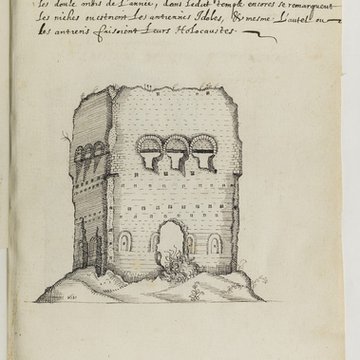 les douse mois de L'année, dans ledut temple encores se remarquent
les niches ou estoient les antiennes Idoles, & mesme L'autel ou
les antiens faisoient Leurs Holocaustes